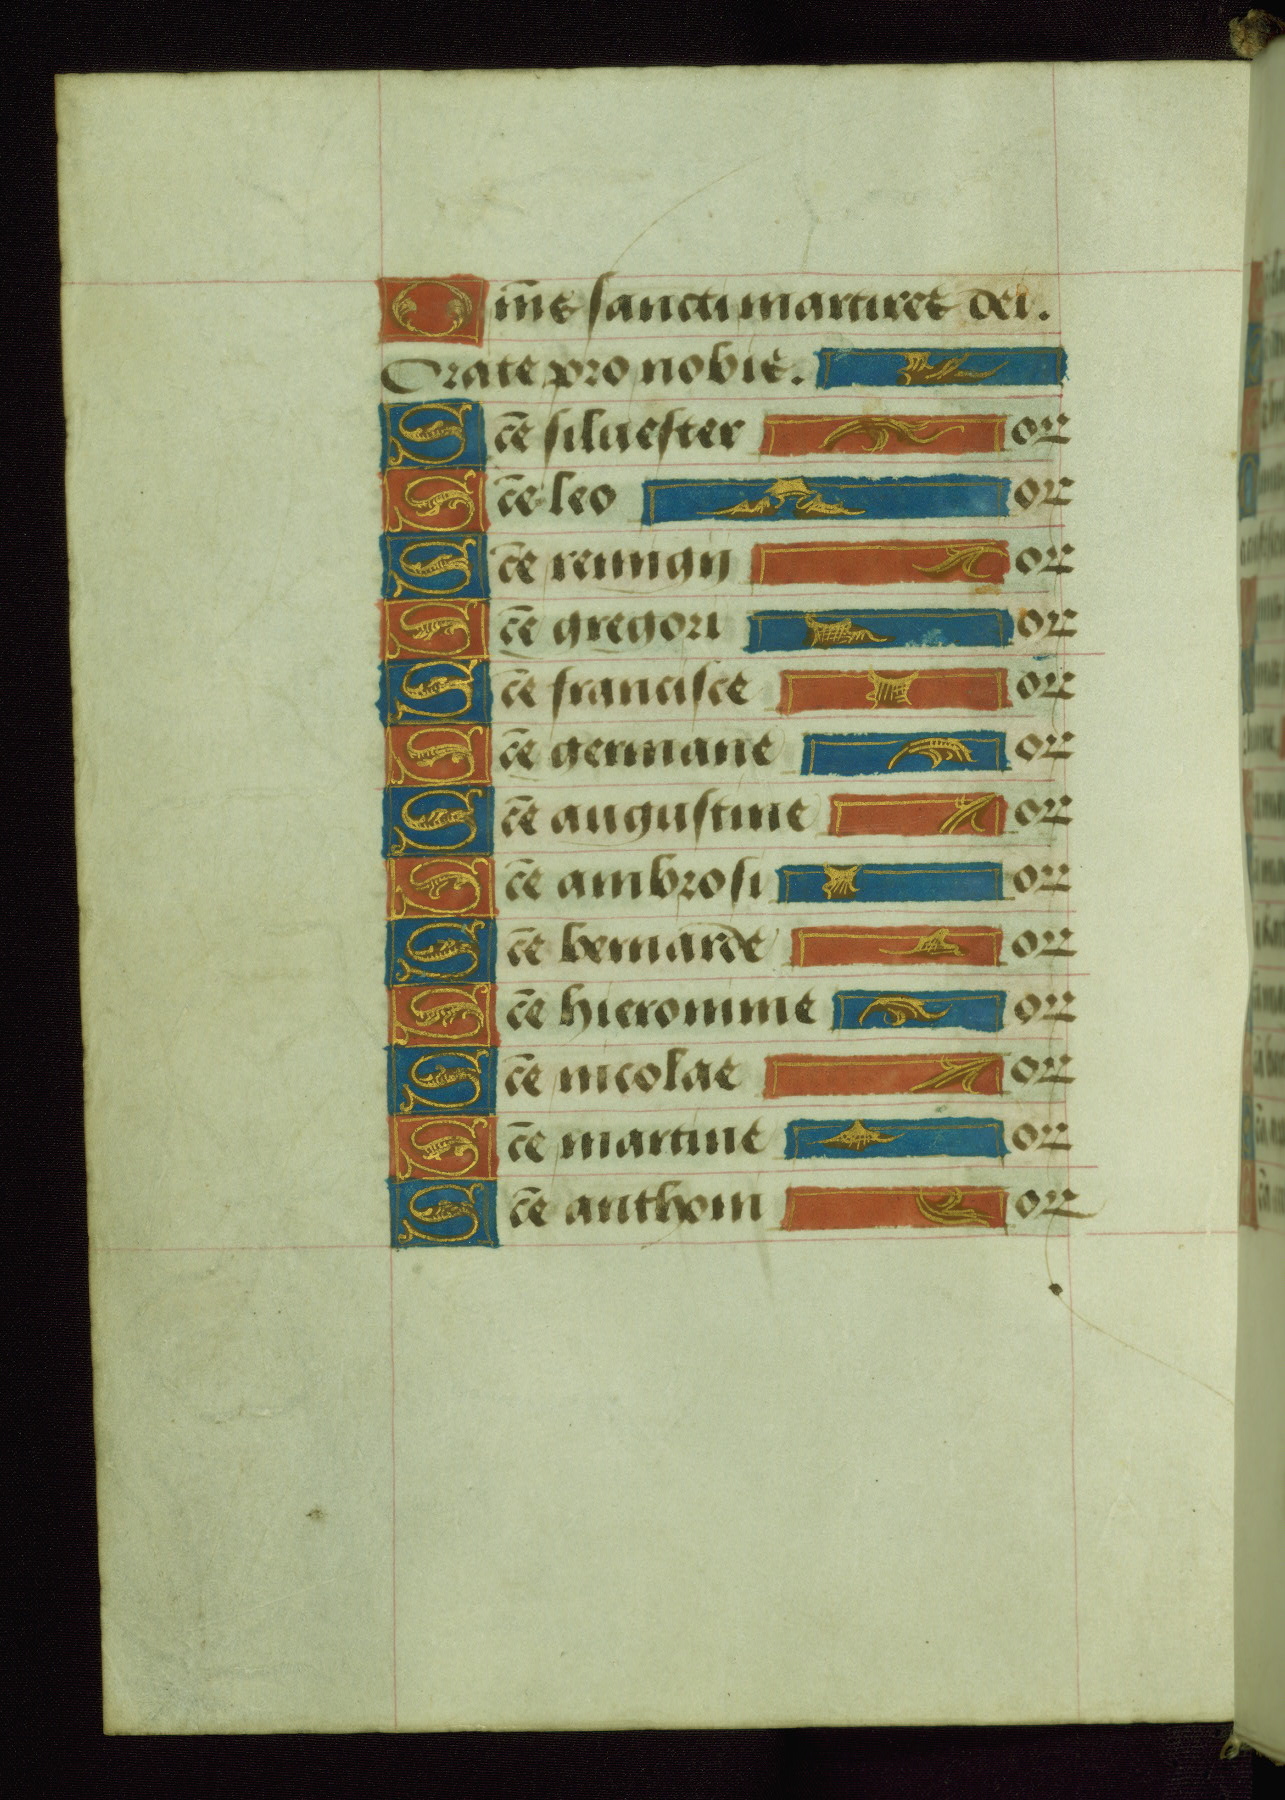 Om̄es sancti martires dei.
Orate pro nobis.
Sc̄e siluester or
Sc̄e leo or
Sc̄e remigij or
Sc̄e gregori or
Sc̄e francisce or
Sc̄e germane or
Sc̄e augustine or
Sc̄e ambrosi or
Sc̄e bernarde or
Sc̄e hieronime or
Sc̄e nicolae or
Sc̄e martine or
Sc̄e anthoni or